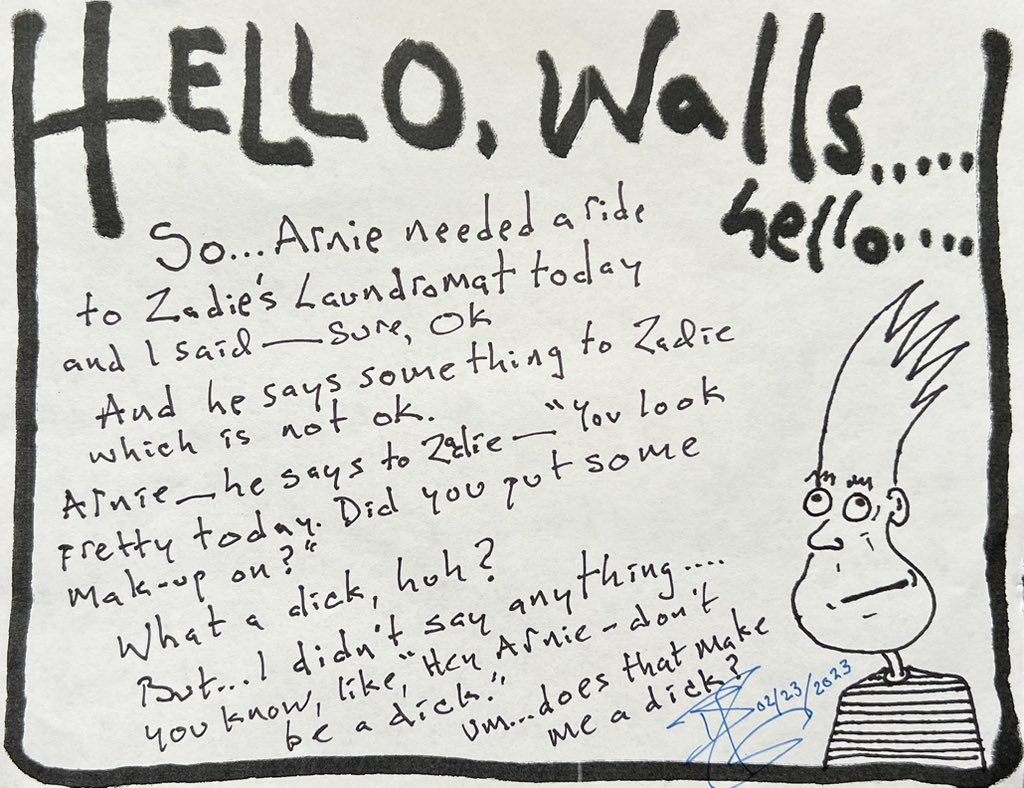 HELLO, Walls.....
hello....
So... Arnie needed a ride
to Zadie's Laundromat today
and I said — Sure, Ok
And he says something to Zadie
which is not ok.
Arnie — he says to Zadie — "You look
pretty today. Did you put some
mak-up on?"
What a dick, huh?
But... I didn't say anything....
you know, like, "Hey Arnie - don't
be a dick."
um... does that make
me a dick?
02/23/2023